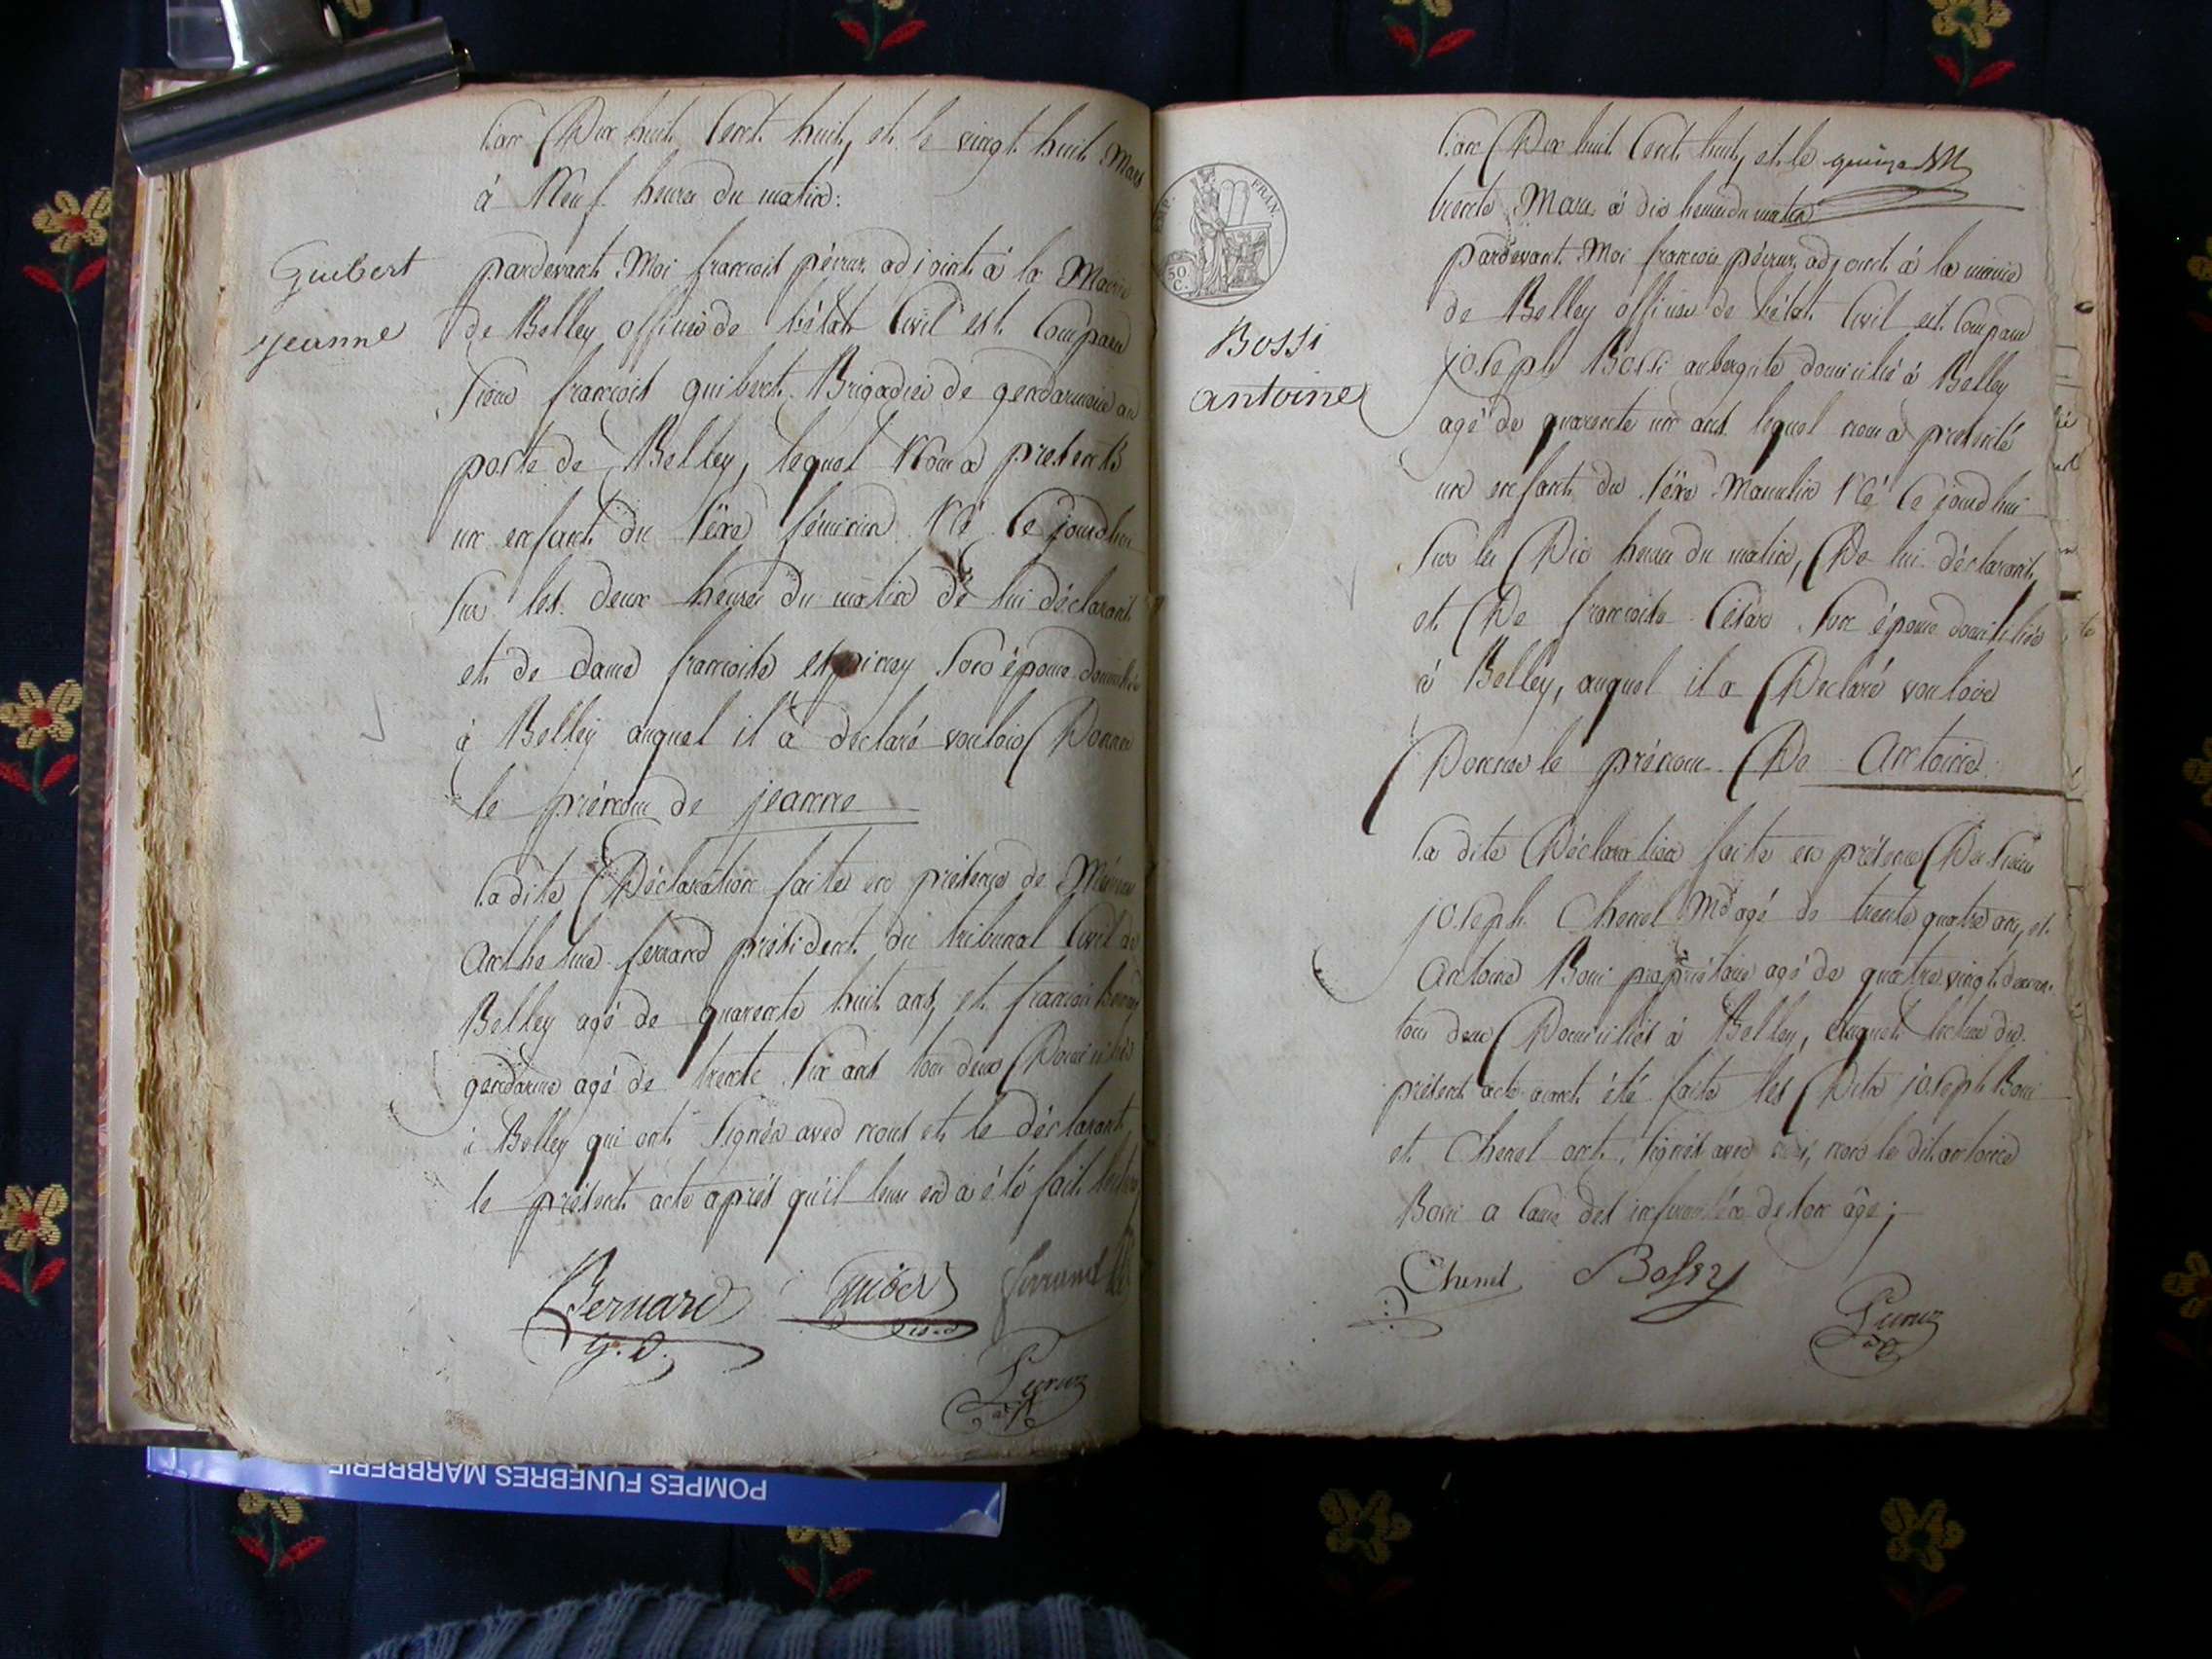 Guibert
jeanne
L'an Dix huit Cent huit, et le vingt huit Mars
à Neuf heures du matin:
pardevant Moi françois péruz adjoint à la Mairie
de Belley officier de l'état Civil est Comparu
Sieur françois guibert Brigadier de gendarmerie au
poste de Belley, lequel Nous a presenté
un enfant du Sexe féminin Né Ce jourdhui
sur les deux heures du matin de lui déclarant
et de dame françoise son épouse domiciliés
à Belley auquel il a déclaré vouloir Donner
le prénom de jeanne
La dite Déclaration faite en présence de
Anthelme ferrand président du tribunal Civil de
Belley agé de quarente huit ans, et françois Bernard
gendarme agé de trente six ans tous deux Domiciliés
à Belley qui ont Signés avec nous et le déclarant
le présent acte après qu'il leur en a été fait lecture
Bernard guiber ferrand
g.d.
Péruz
EMP. FRAN.
50
C.
Bossi
antoine
L'an Dix huit Cent huit, et le
trente Mars à dix heures du matin
pardevant Moi françois péruz adjoint à la mairie
de Belley officier de l'état Civil est Comparu
joseph Bossi aubergite domicilié à Belley
agé de quarente un ans lequel nous a presenté
un enfant du Sexe Masculin Né Ce jourdhui
Sur les Dix heures du matin, De lui déclarant
et De françoise César Son épouse domiciliés
à Belley, auquel il a Declaré vouloir
Donner le prénom De Antoine
La dite Déclaration faite en présence Des Sieurs
joseph Chenel Md agé de trente quatre ans, et
Antoine propriétaire agé de quatre vingt deux ans
tous deux Domiciliés à Belley, lecture du
présent acte ayant été faite les Dits joseph
et Chenel ont signés avec moi, non le dit antoine
a cause des infirmités de son âge;
Chenel Bossy
Péruz
POMPES FUNEBRES MARBRERIE